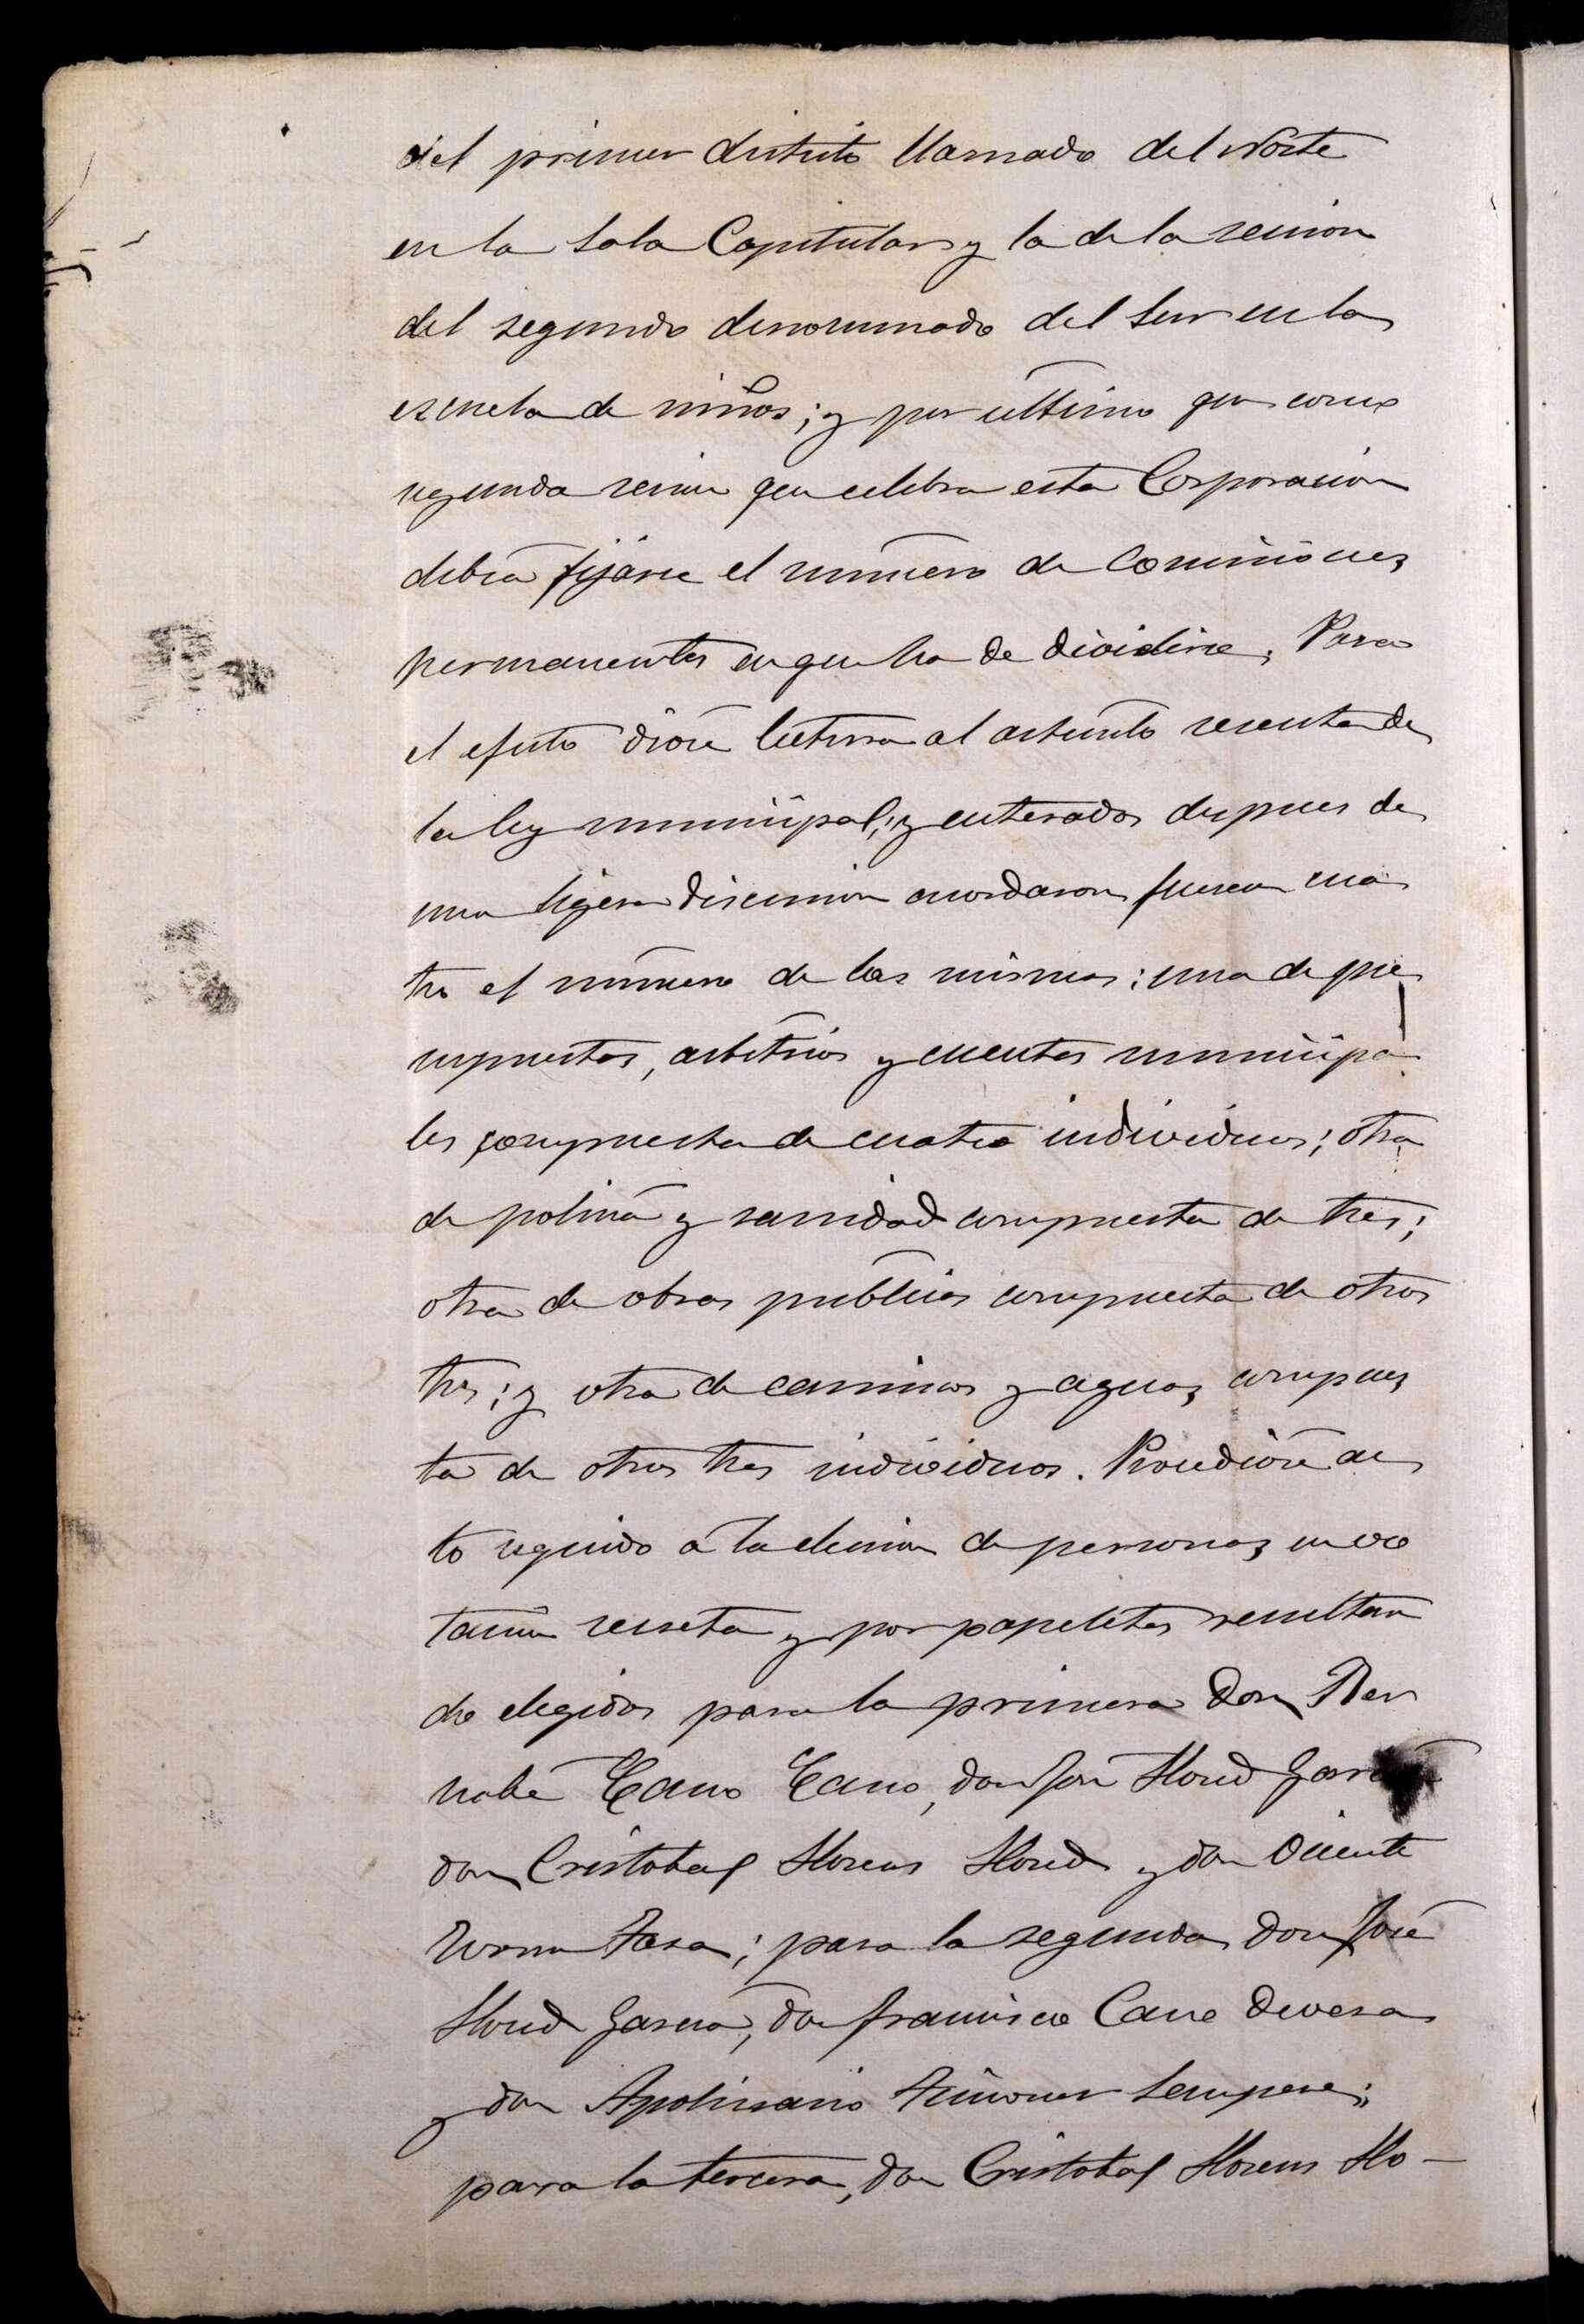 del primer distrito llamado del Norte
en la Sala Capitular y la de la sesion
del segundo denominado del Sur en la
escuela de niños; y por último que como
segunda sesion que celebra esta Corporacion
debia fijarse el número de Comisiones
permanentes en que ha de dividirse. Para
el efecto dióse lectura al artículo sesenta de
la ley municipal; y enterados despues de
una ligera discusion acordaron fuesen cua
tro el número de las mismas: una de pre
supuestos, arbitrios y cuentas municipa
les compuesta de cuatro individuos; otra
de policía y sanidad compuesta de tres;
otra de obras públicas compuesta de otros
tres; y otra de caminos y aguas compues
ta de otros tres individuos. Procedióse ac
to seguido á la eleccion de personas en vo
tacion secreta y por papeletas resultan
do elegidos para la primera Don Ber
nabé Cano Cano, don José Llorens García
don Cristobal Llorens Llorens y don Vicente
para la segunda don José
Llorens García, don Francisco Cano Devesa
y don Apolinario Sempere;
para la tercera, don Cristobal Llorens Llo-